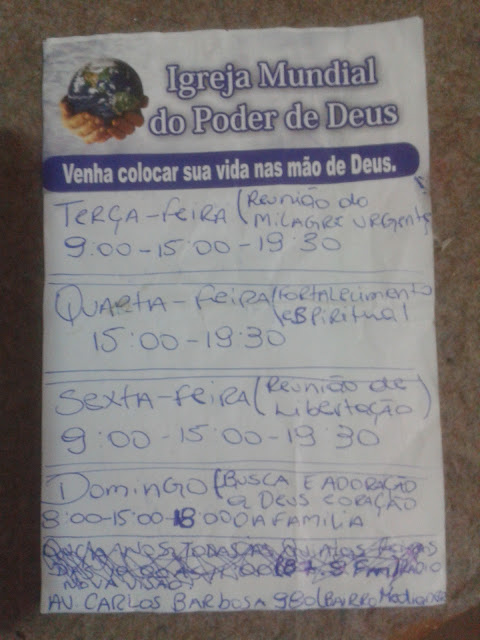 Igreja Mundial
do Poder de Deus
Venha colocar sua vida nas mão de Deus.
TERÇA-FEIRA (REUNIÃO DO
MILAGRE URGENTE
9:00-15:00-19:30
QUARTA-FEIRA (FORTALECIMENTO
ESPIRITUAL
15:00-19:30
SEXTA-FEIRA (REUNIÃO DE
LIBERTAÇÃO)
9:00-15:00-19:30
DOMINGO (BUSCA E ADORAÇÃO
a DEUS CORAÇÃO
8:00-15:00-18:00 DA FAMILIA
NOS TODAS AS
RADIO
NOVA
AV. CARLOS BARBOSA 980 (BAIRRO